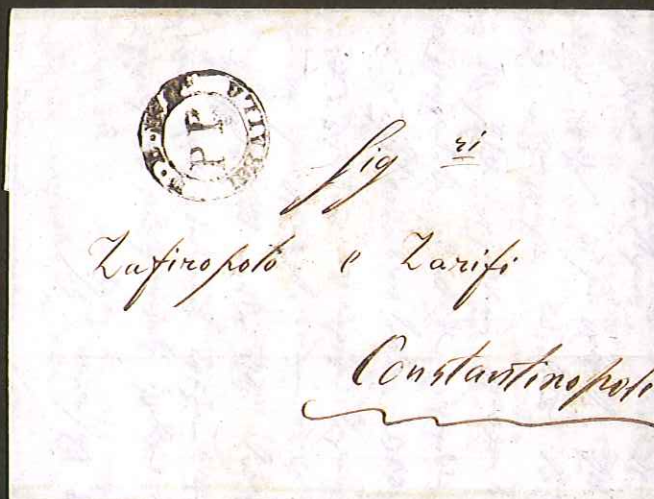 BRAILA
P P
Sig ri
Zafiropolo e Zarifi
Constantinopoli